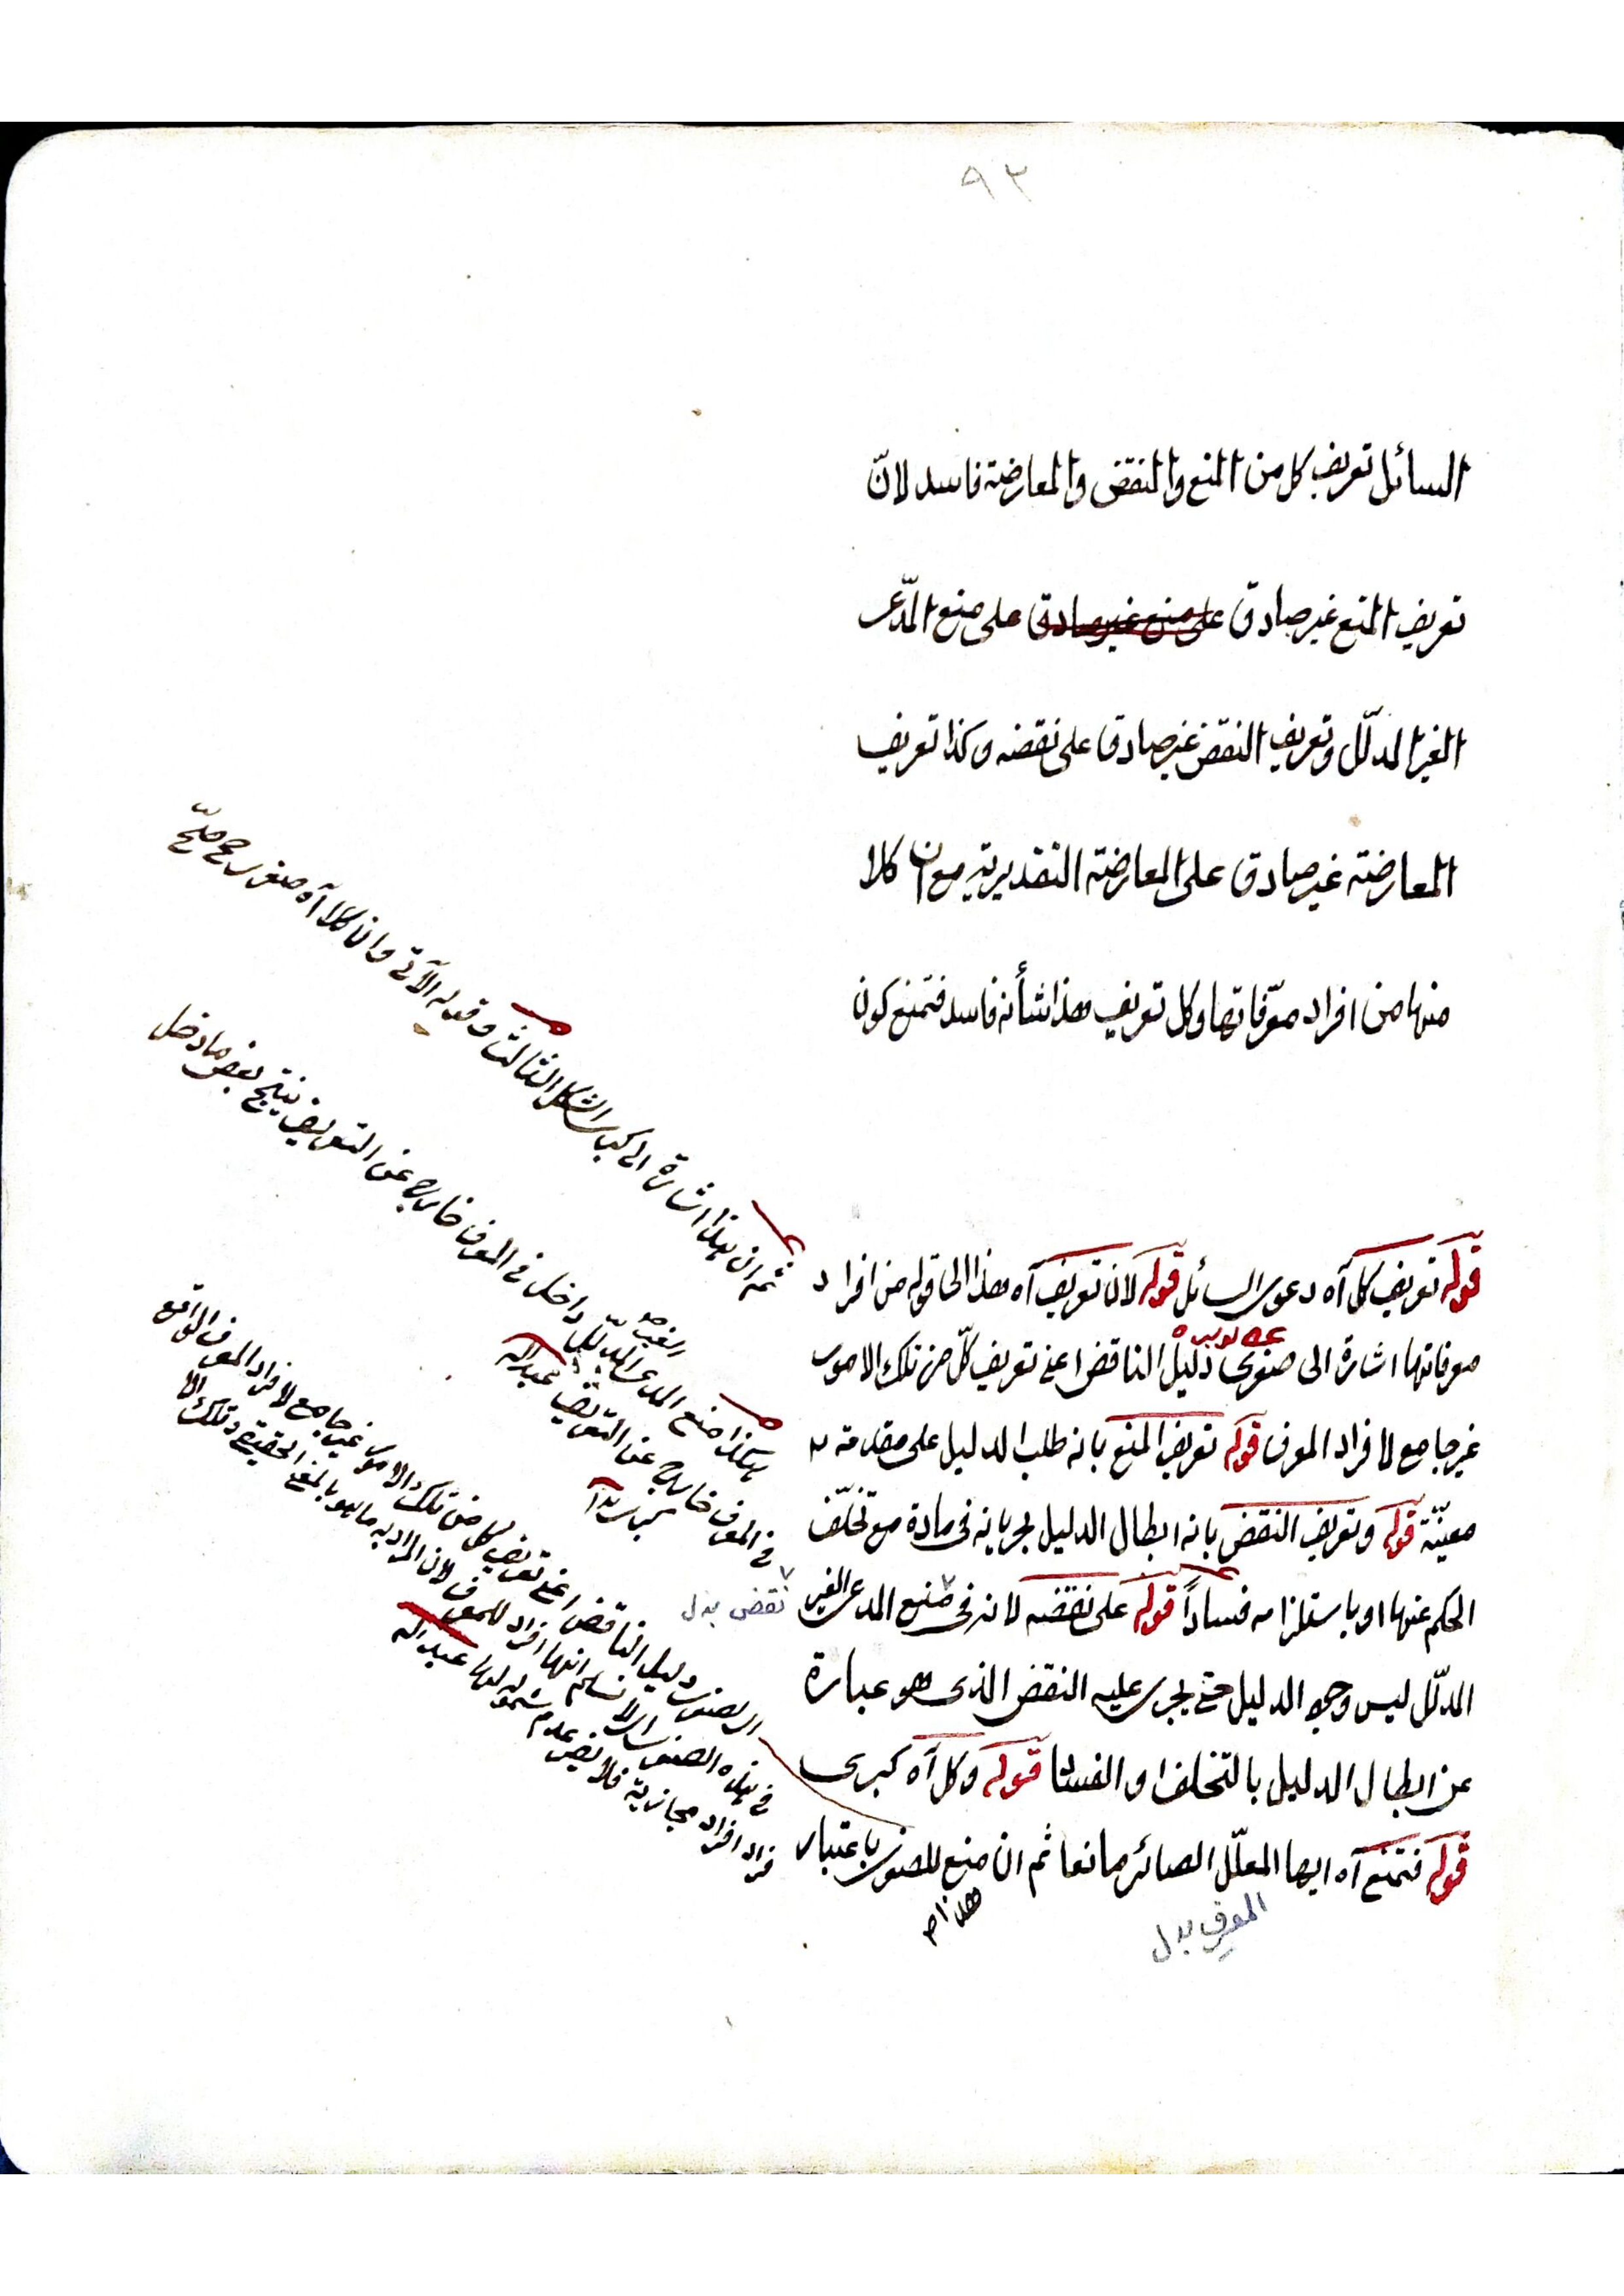 ٩٣
السائل تعريف كل من المنع والنقض والمعارضة فاسد لانّ
تعريف المنع غير صادق على منع غير صادق على منع المدّعى
الغير المدلّل وتعريف النقض غير صادق على نقضه وكذا تعريف
المعارضة غير صادق على المعارضة التقديرية مع ان كلا
منها من افراد معرّفاتها وكل تعريف هذا شأنه فاسد فتمنع كون
قوله تعريف كل آه دعوى السائل قوله لان تعريف آه هذا الى قوله من افراد
معرفاتها اشارة الى صغرى دليل الناقض اعنى تعريف كلّ من تلك الامور
غير جامع لافراد المعرف قوله تعريف المنع بانه طلب الدليل على مقدمة
معيّنة قوله وتعريف النقض بانه ابطال الدليل لجريانه فى مادة مع تخلّف
الحكم عنها او باستلزامه فساداً قوله على نقضه لانه فى منع المدعى الغير
المدلّل ليس وجه الدليل حتى يجرى عليه النقض الذى هو عبارة
عن ابطال الدليل بالتخلف او الفساد قوله وكل آه كبرى
قوله فتمنع آه ايها المعلّل الصائر مانعا ثم ان منع الصغرى باعتبار
هذا
المعرف بدل
نقض بدل
ثم ان هذا اشارة الى كبرى الشكل الثالث وقوله الآتى وان كلا آه صغرى
هكذا منع المدعى المدلّل داخل فى المعرف خارج عن التعريف ينتج بعض ما دخل
الغير صح
فى المعرف خارج عن التعريف عبدالله
الصغرى دليل الناقض اعنى تعريف كل من تلك الامور غير جامع لافراد المعرف الواقع
فى هذه الصغرى لا نسلم انها افراد للمعرف لان المراد به ما هو بالمعنى الحقيقى وتلك
افراد مجازية فلا يضر عدم شموله لها عبدالله